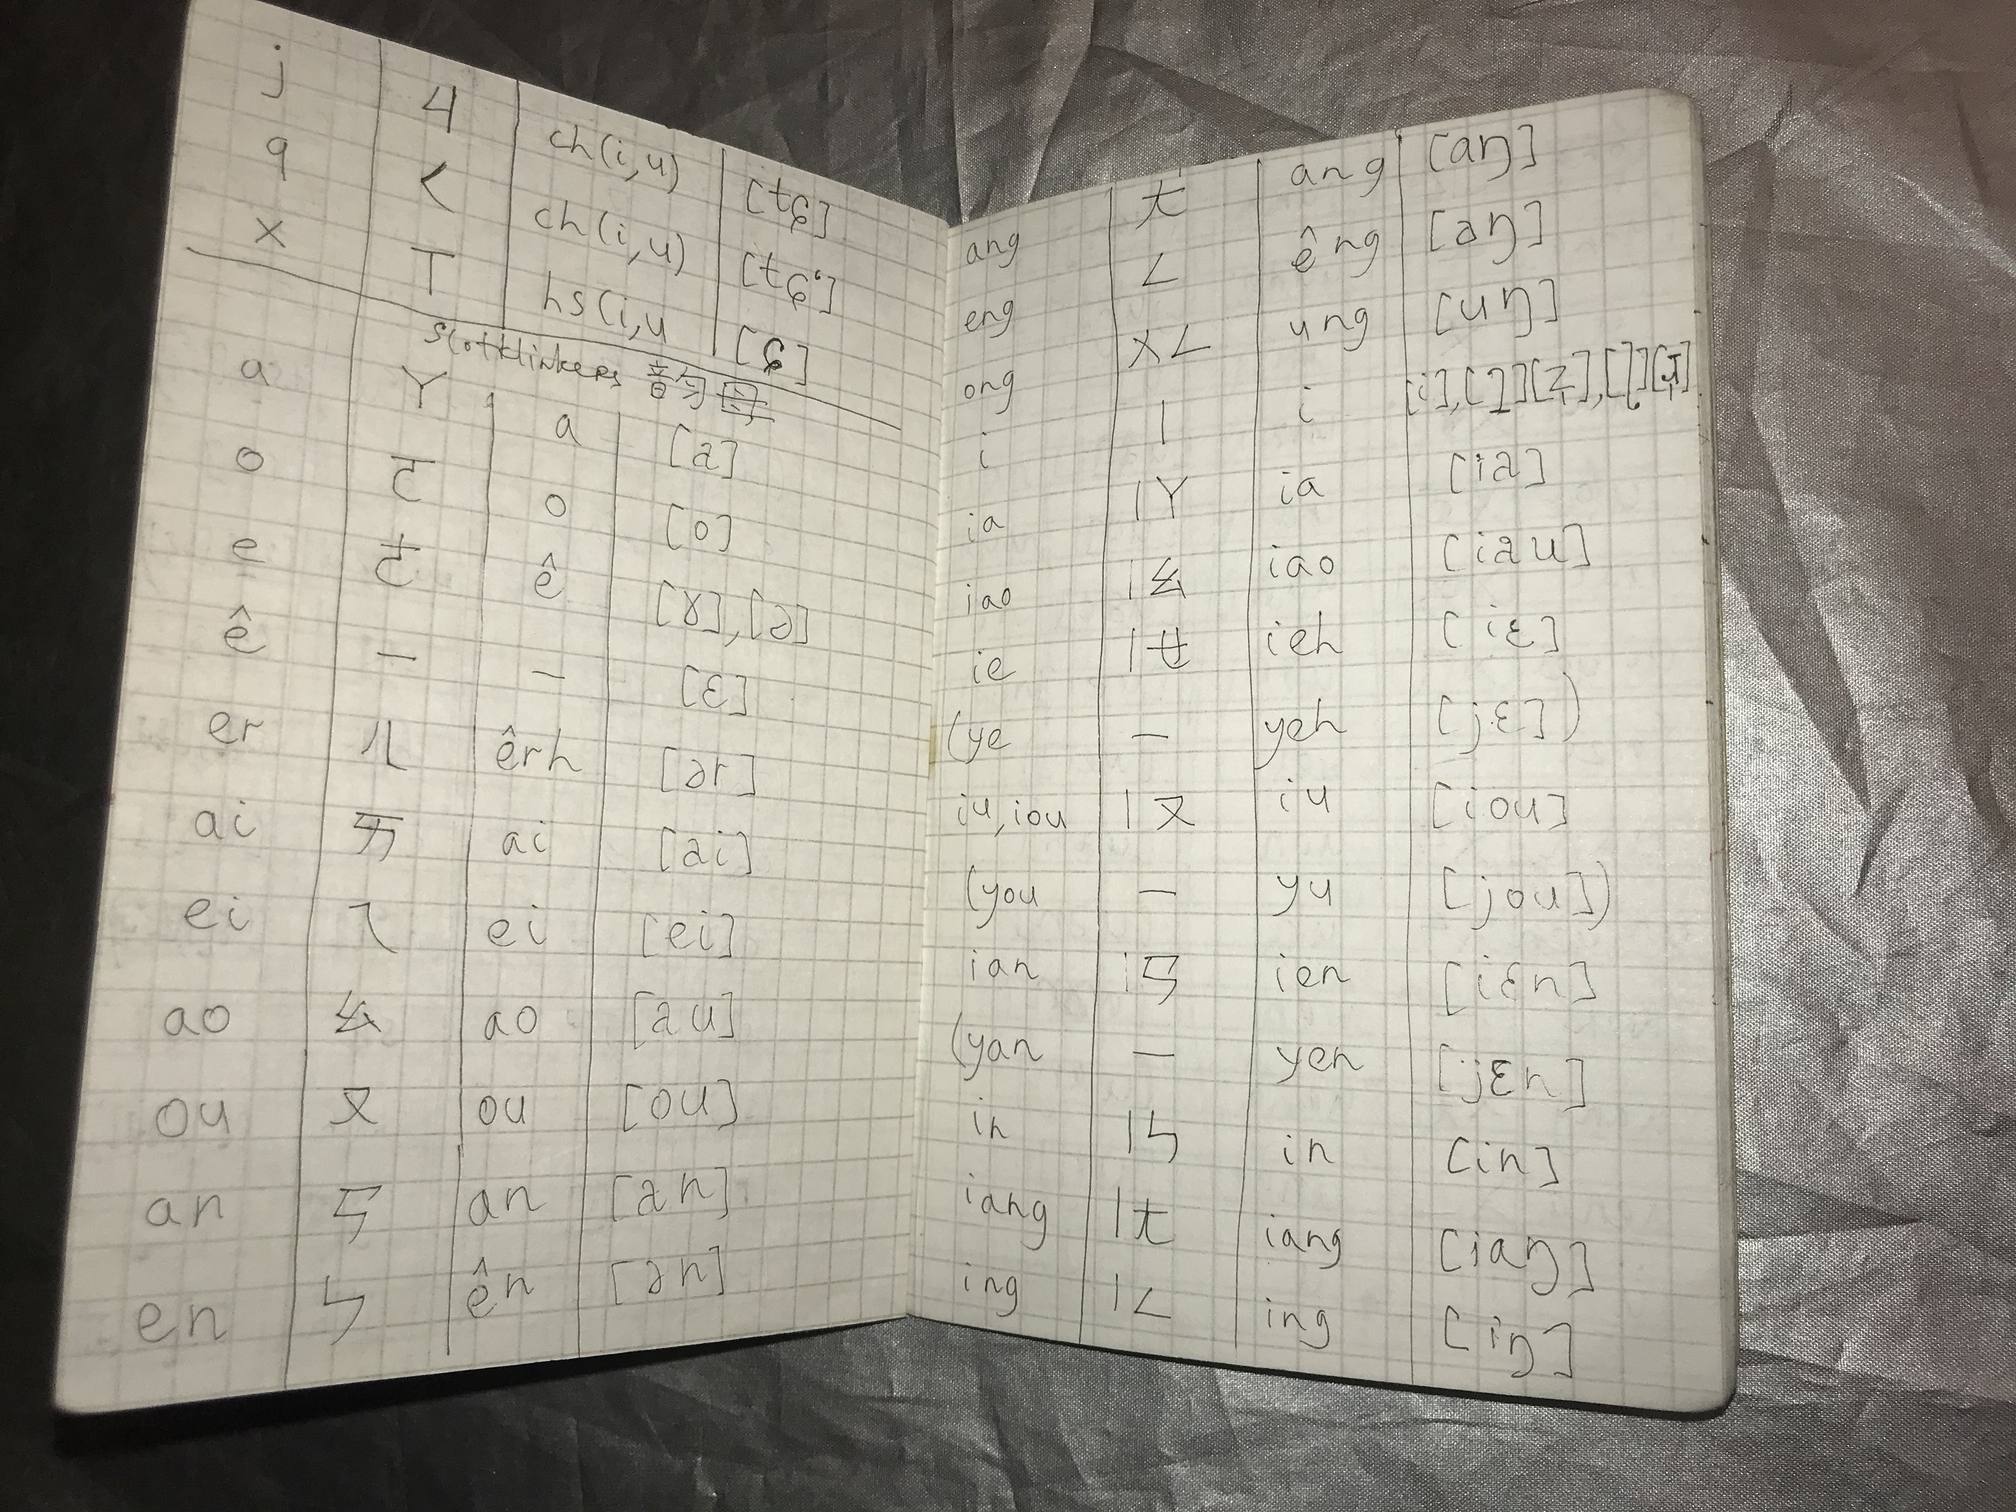 j ㄐ ch(i,u) [tɕ]
q ㄑ ch(i,u) [tɕ‘]
x ㄒ hs(i,u [ɕ]
Slotklinkers 韵母
a ㄚ a [a]
o ㄛ o [o]
e ㄜ ê [ɤ],[ə]
ê — — [ɛ]
er ㄦ êrh [ər]
ai ㄞ ai [ai]
ei ㄟ ei [ei]
ao ㄠ ao [au]
ou ㄡ ou [ou]
an ㄢ an [an]
en ㄣ ên [ən]
ang ㄤ ang [aŋ]
eng ㄥ êng [əŋ]
ong ㄨㄥ ung [uŋ]
i ㄧ i [i],[ɿ]
ia ㄧㄚ ia [ia]
iao ㄧㄠ iao [iau]
ie ㄧㄝ ieh [iɛ]
(ye — yeh [jɛ])
iu, iou ㄧㄡ iu [iou]
(you — yu [jou])
ian ㄧㄢ ien [iɛn]
(yan — yen [jɛn]
in ㄧㄣ in [in]
iang ㄧㄤ iang [iaŋ]
ing ㄧㄥ ing [iŋ]